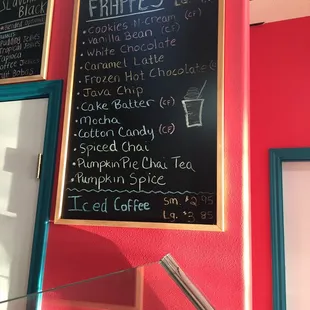 Black
FRAPPES
Lg.
• Cookies N cream (CF)
• Vanilla Bean (CF)
• White Chocolate
• Caramel Latte
• Frozen Hot Chocolate
• Java Chip
• Cake Batter (CF)
• Mocha
• Cotton Candy (CF)
• Spiced Chai
• Pumpkin Pie Chai Tea
• Pumpkin Spice
Iced Coffee Sm. $2.95
Lg. $3.85